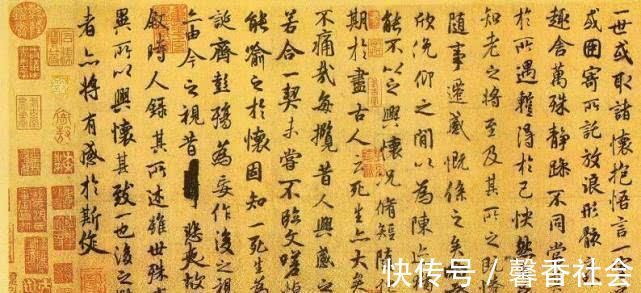 一世或取諸懷抱悟言一
或因寄所託放浪形骸
趣舍萬殊静躁不同當
於所遇蹔得於己快然
知老之將至及其所之既
随事遷感慨係之矣
欣俛仰之閒以為陳
能不以之興懷況脩短
期於盡古人云死生亦大矣
不痛哉每攬昔人興感之
若合一契未嘗不臨文嗟悼
能喻之於懷固知一死生為
誕齊彭殤為妄作後之視
亦由今之視昔悲夫故
敘時人錄其所述雖世殊
異所以興懷其致一也後之
者亦將有感於斯文
快传号 / 馨香社会